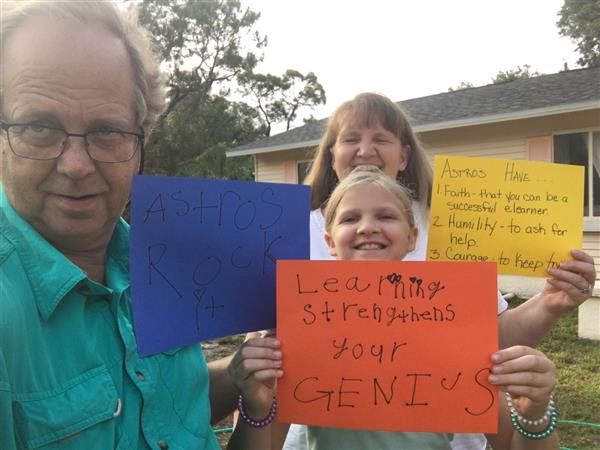 Astros
Rock
it
Learning
strengthens
your
GENIUS
Astros Have ...
1. Faith - that you can be a
successful elearner.
2. Humility - to ask for
help.
3. Courage - to keep